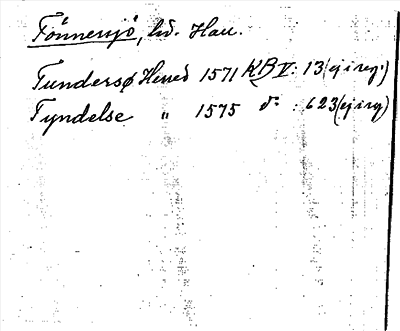 Tönnersjö, hd. Hall.
Tundersø Herred 1571 KB V: 13 (ej i reg.)
Tyndelse " 1575 d:o : 623 (ej i reg)